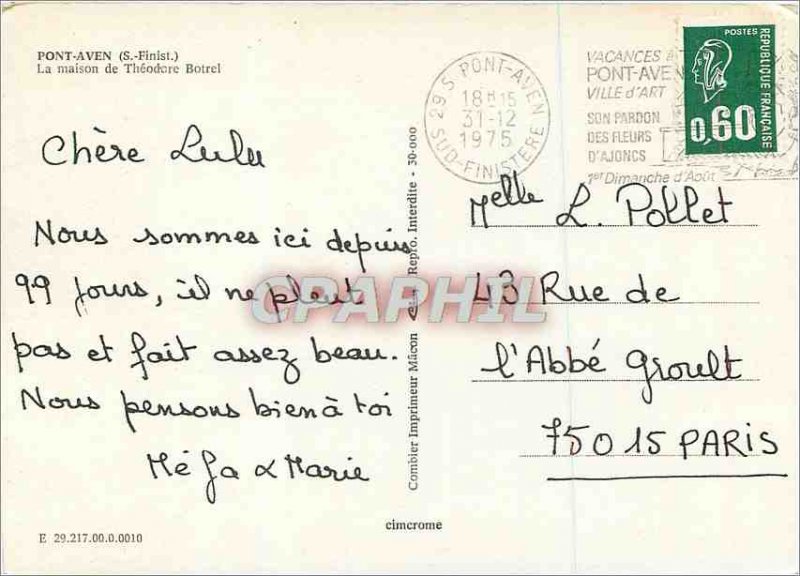 PONT-AVEN (S.-Finist.)
La maison de Théodore Botrel
Chère Lulu
Nous sommes ici depuis
99 jours, il ne pleut
pas et fait assez beau.
Nous pensons bien à toi
Mé Ja & Marie
E 29.217.00.0.0010
Combier Imprimeur Mâcon
Repro. Interdite - 30-000
cimcrome
CPAPHIL
29 S PONT-AVEN
18H15
31-12
1975
SUD-FINISTERE
VACANCES à
PONT-AVEN
VILLE d'ART
SON PARDON
DES FLEURS
D'AJONCS
1er Dimanche d'Août
POSTES
RÉPUBLIQUE FRANÇAISE
0,60
Melle L. Pollet
43 Rue de
l'Abbé Groult
75015 PARIS